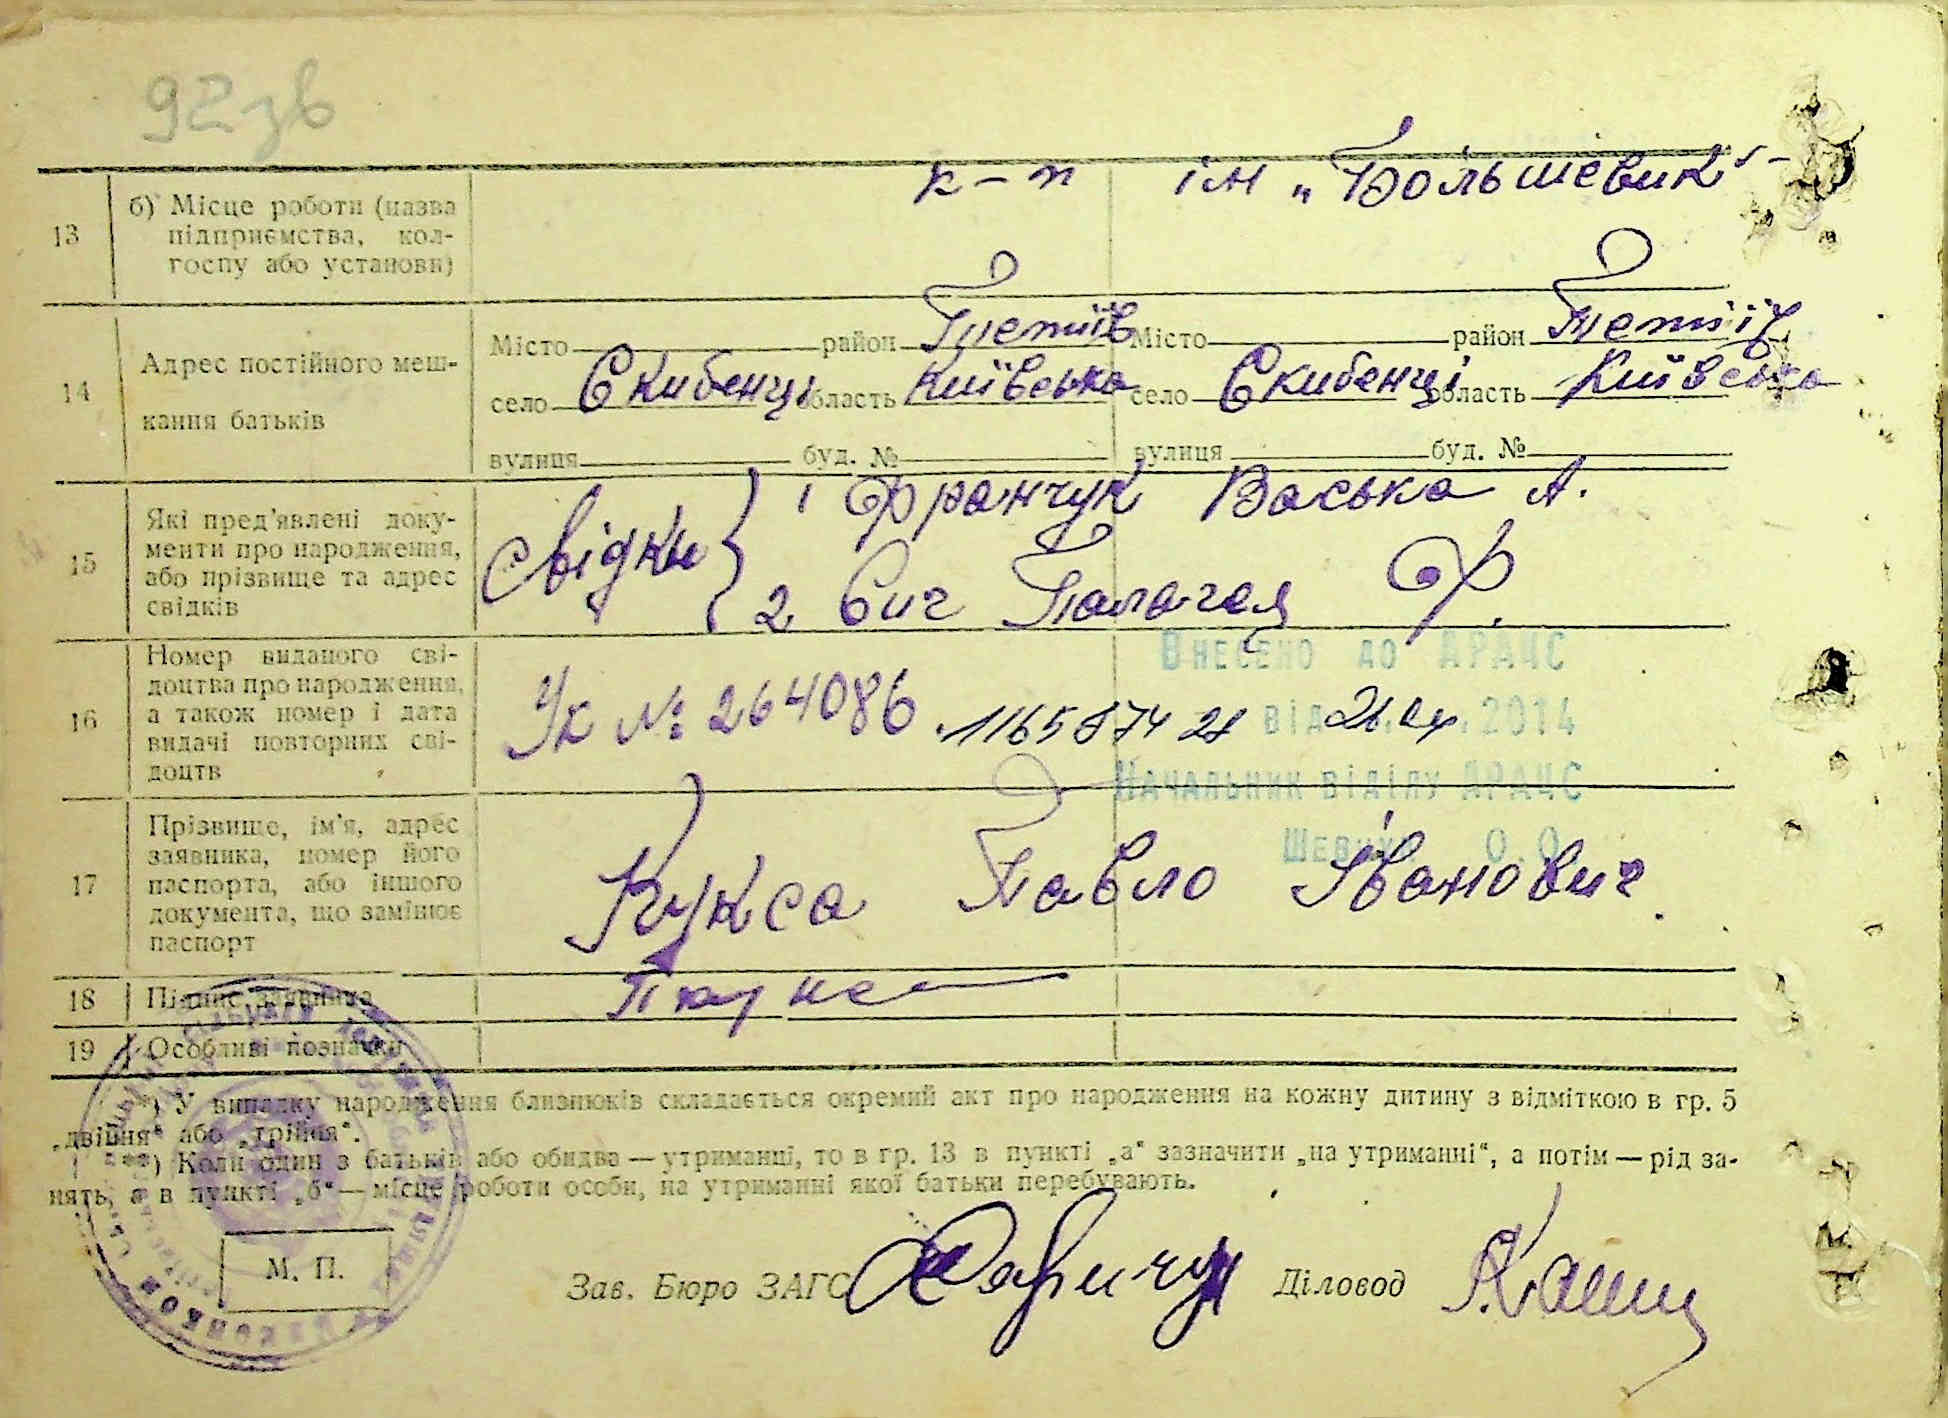 92зв
к-п ім „Більшевик"
13
б) Місце роботи (назва
підприємства, кол-
госпу або установи)
14
Адрес постійного меш-
кання батьків
Місто район Тетиїв Місто район Тетиїв
село Скибенці область Київська село Скибенці область Київська
вулиця буд. № вулиця буд. №
15
Які пред'явлені доку-
менти про народження,
або прізвище та адрес
свідків
Свідки 1 Франчук Васька А.
2 Сич Палагея Ф.
16
Номер виданого сві-
доцтва про народження,
а також номер і дата
видачі повторних сві-
доцтв
Ук № 264086
Внесено до АРАЦС
від 2014
Начальник відділу АРАЦС
О.О
17
Прізвище, ім'я, адрес
заявника, номер його
паспорта, або іншого
документа, що замінює
паспорт
Кукса Павло Іванович.
18
Підпис заявника
19
Особливі позначки
*) У випадку народження близнюків складається окремий акт про народження на кожну дитину з відміткою в гр. 5
„двійня" або „трійня".
**) Коли один з батьків або обидва — утриманці, то в гр. 13 в пункті „а" зазначити „на утриманні", а потім — рід за-
нять, а в пункті „б" — місце роботи особи, на утриманні якої батьки перебувають.
М. П.
Зав. Бюро ЗАГС Діловод